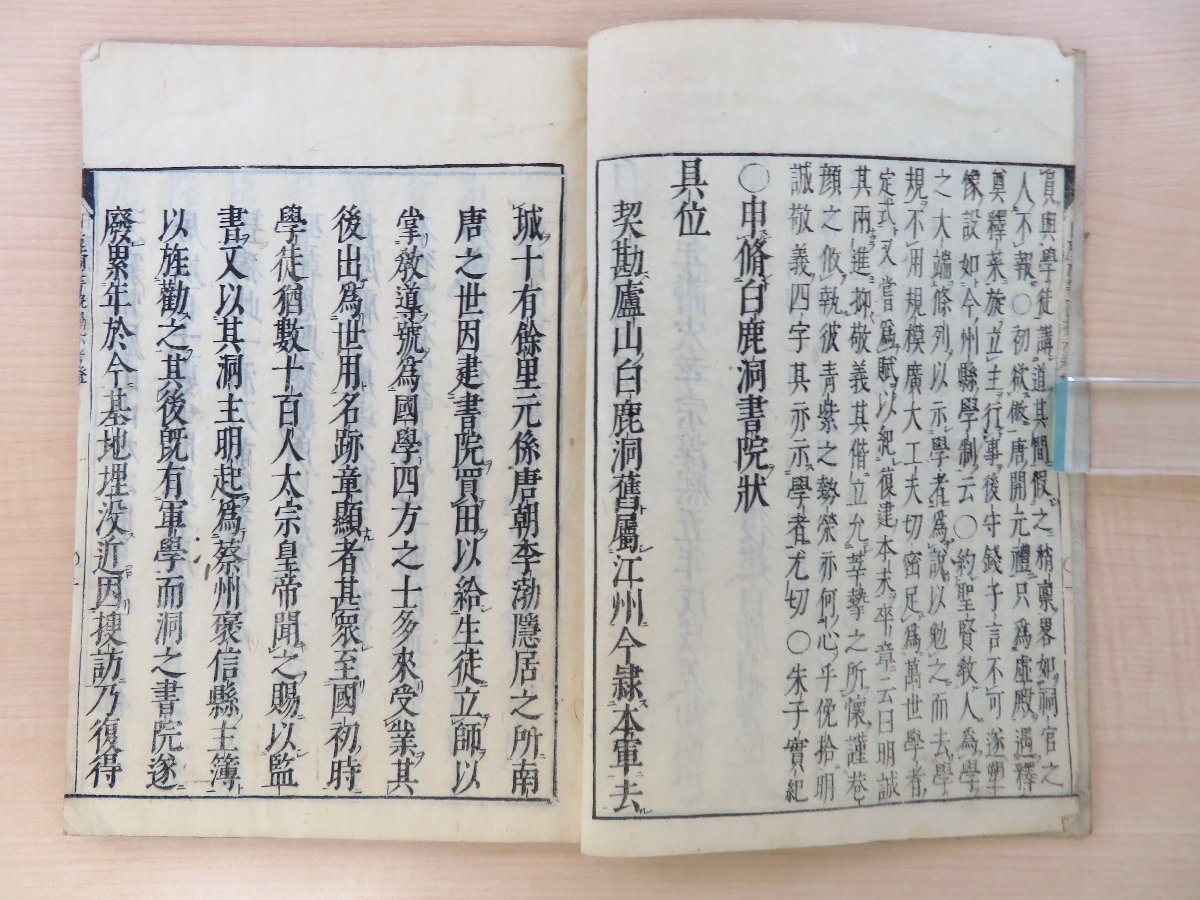 員與學徒講道其間假之稍稟畧如祠官之
人不報〇初欲倣唐開元禮只爲虛殿遇釋
奠釋菜旋立主行事後守錢子言不可遂塑
像設如今州縣學制云〇約聖賢敎人爲學
之大端條列以示學者爲說以勉之而去學
規不用規模廣大工夫切密足爲萬世學者
定式又嘗爲賦以紀復建本末卒章云曰明誠
其兩進抑敬義其偕立允莘摯之所懷謹巷
顏之攸執彼靑紫之勢榮亦何心乎俛拾明
誠敬義四字其示示學者尤切〇朱子實紀
〇申脩白鹿洞書院狀
具位
契勘廬山白鹿洞舊屬江州今隷本軍去
城十有餘里元係唐朝李渤隱居之所南
唐之世因建書院買田以給生徒立師以
掌敎導號爲國學四方之士多來受業其
後出爲世用名跡章顯者甚衆至國初時
學徒猶數十百人太宗皇帝聞之賜以監
書又以其洞主明起爲蔡州褒信縣主簿
以旌勸之其後旣有軍學而洞之書院遂
廢累年於今基地埋没近因搜訪乃復得